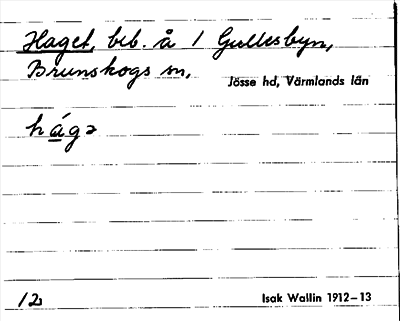 Haget, beb. å 1 Gullesbyn,
Brunskogs sn,
Jösse hd, Värmlands län
hágə
12
Isak Wallin 1912–13